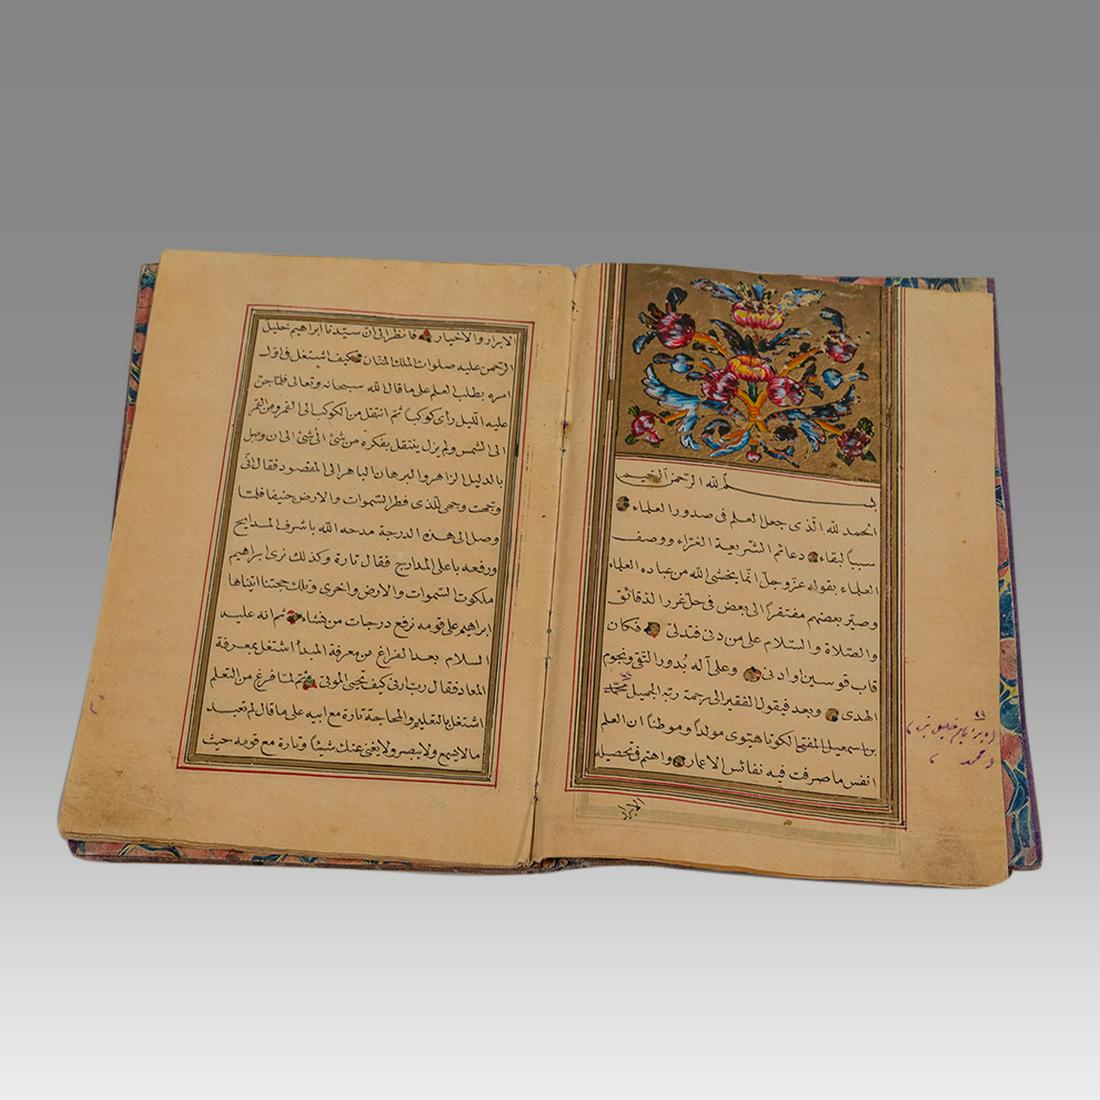 بسم الله الرحمن الرحيم
الحمد لله الذى جعل العلم فى صدور العلماء
سببا لبقاء دعائم الشريعة الغراء ووصف
العلماء بقوله عز وجل انما يخشى الله من عباده العلماء
وصير بعضهم مفتقرا الى بعض فى حل غرر الدقائق
والصلاة والسلام على من دنى فتدلى فكان
قاب قوسين او ادنى وعلى آله بدور التقى ونجوم
الهدى وبعد فيقول الفقير الى رحمة ربه الجميل محمد
بن اسمعيل المفتخا لكوناهيتوى مولدا وموطنا ان العلم
انفس ما صرفت فيه نفائس الاعمار واهتم فى تحصيله
الابرار
الابرار والاخيار فانظر الى ان سيدنا ابراهيم خليل
الرحمن عليه صلوات الملك المنان كيف اشتغل فى اول
امره بطلب العلم على ما قال الله سبحانه وتعالى فلما جن
عليه الليل رأى كوكبا ثم انتقل من الكوكب الى القمر ومن القمر
الى الشمس ولم يزل ينتقل بفكره من شئ الى شئ الى ان وصل
بالدليل الزاهر والبرهان الباهر الى المقصود فقال انى
وجهت وجهى للذى فطر السموات والارض حنيفا فلما
وصل الى هذه الدرجة مدحه الله باشرف المدايح
ورفعه باعلى المداريج فقال تارة وكذلك نرى ابراهيم
ملكوت السموات والارض واخرى وتلك حجتنا اتيناها
ابراهيم على قومه نرفع درجات من نشاء ثم انه عليه
السلام بعد الفراغ من معرفة المبدأ اشتغل بمعرفة
المعاد فقال رب ارنى كيف تحيى الموتى ثم لما فرغ من التعلم
اشتغل بالتعليم والمحاجة تارة مع ابيه على ما قال لم تعبد
ما لا يسمع ولا يبصر ولا يغنى عنك شيئا وتارة مع قومه حيث